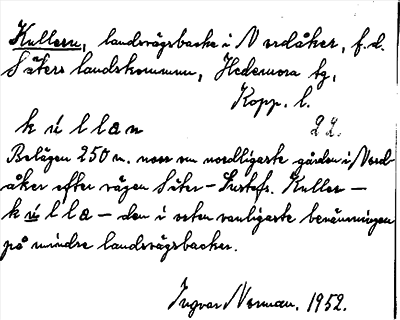 Kullern, landsvägsbacke i Nordåker, f.d.
Säters landskommun, Hedemora tg,
Kopp. l.
kúllan 22.
Belägen 250 m. norr om nordligaste gården i Nord-
åker efter vägen Säter - Gustafs. Kuller -
kúlla - den i orten vanligaste benämningen
på mindre landsvägsbackar.
Ingvar Norman. 1952.